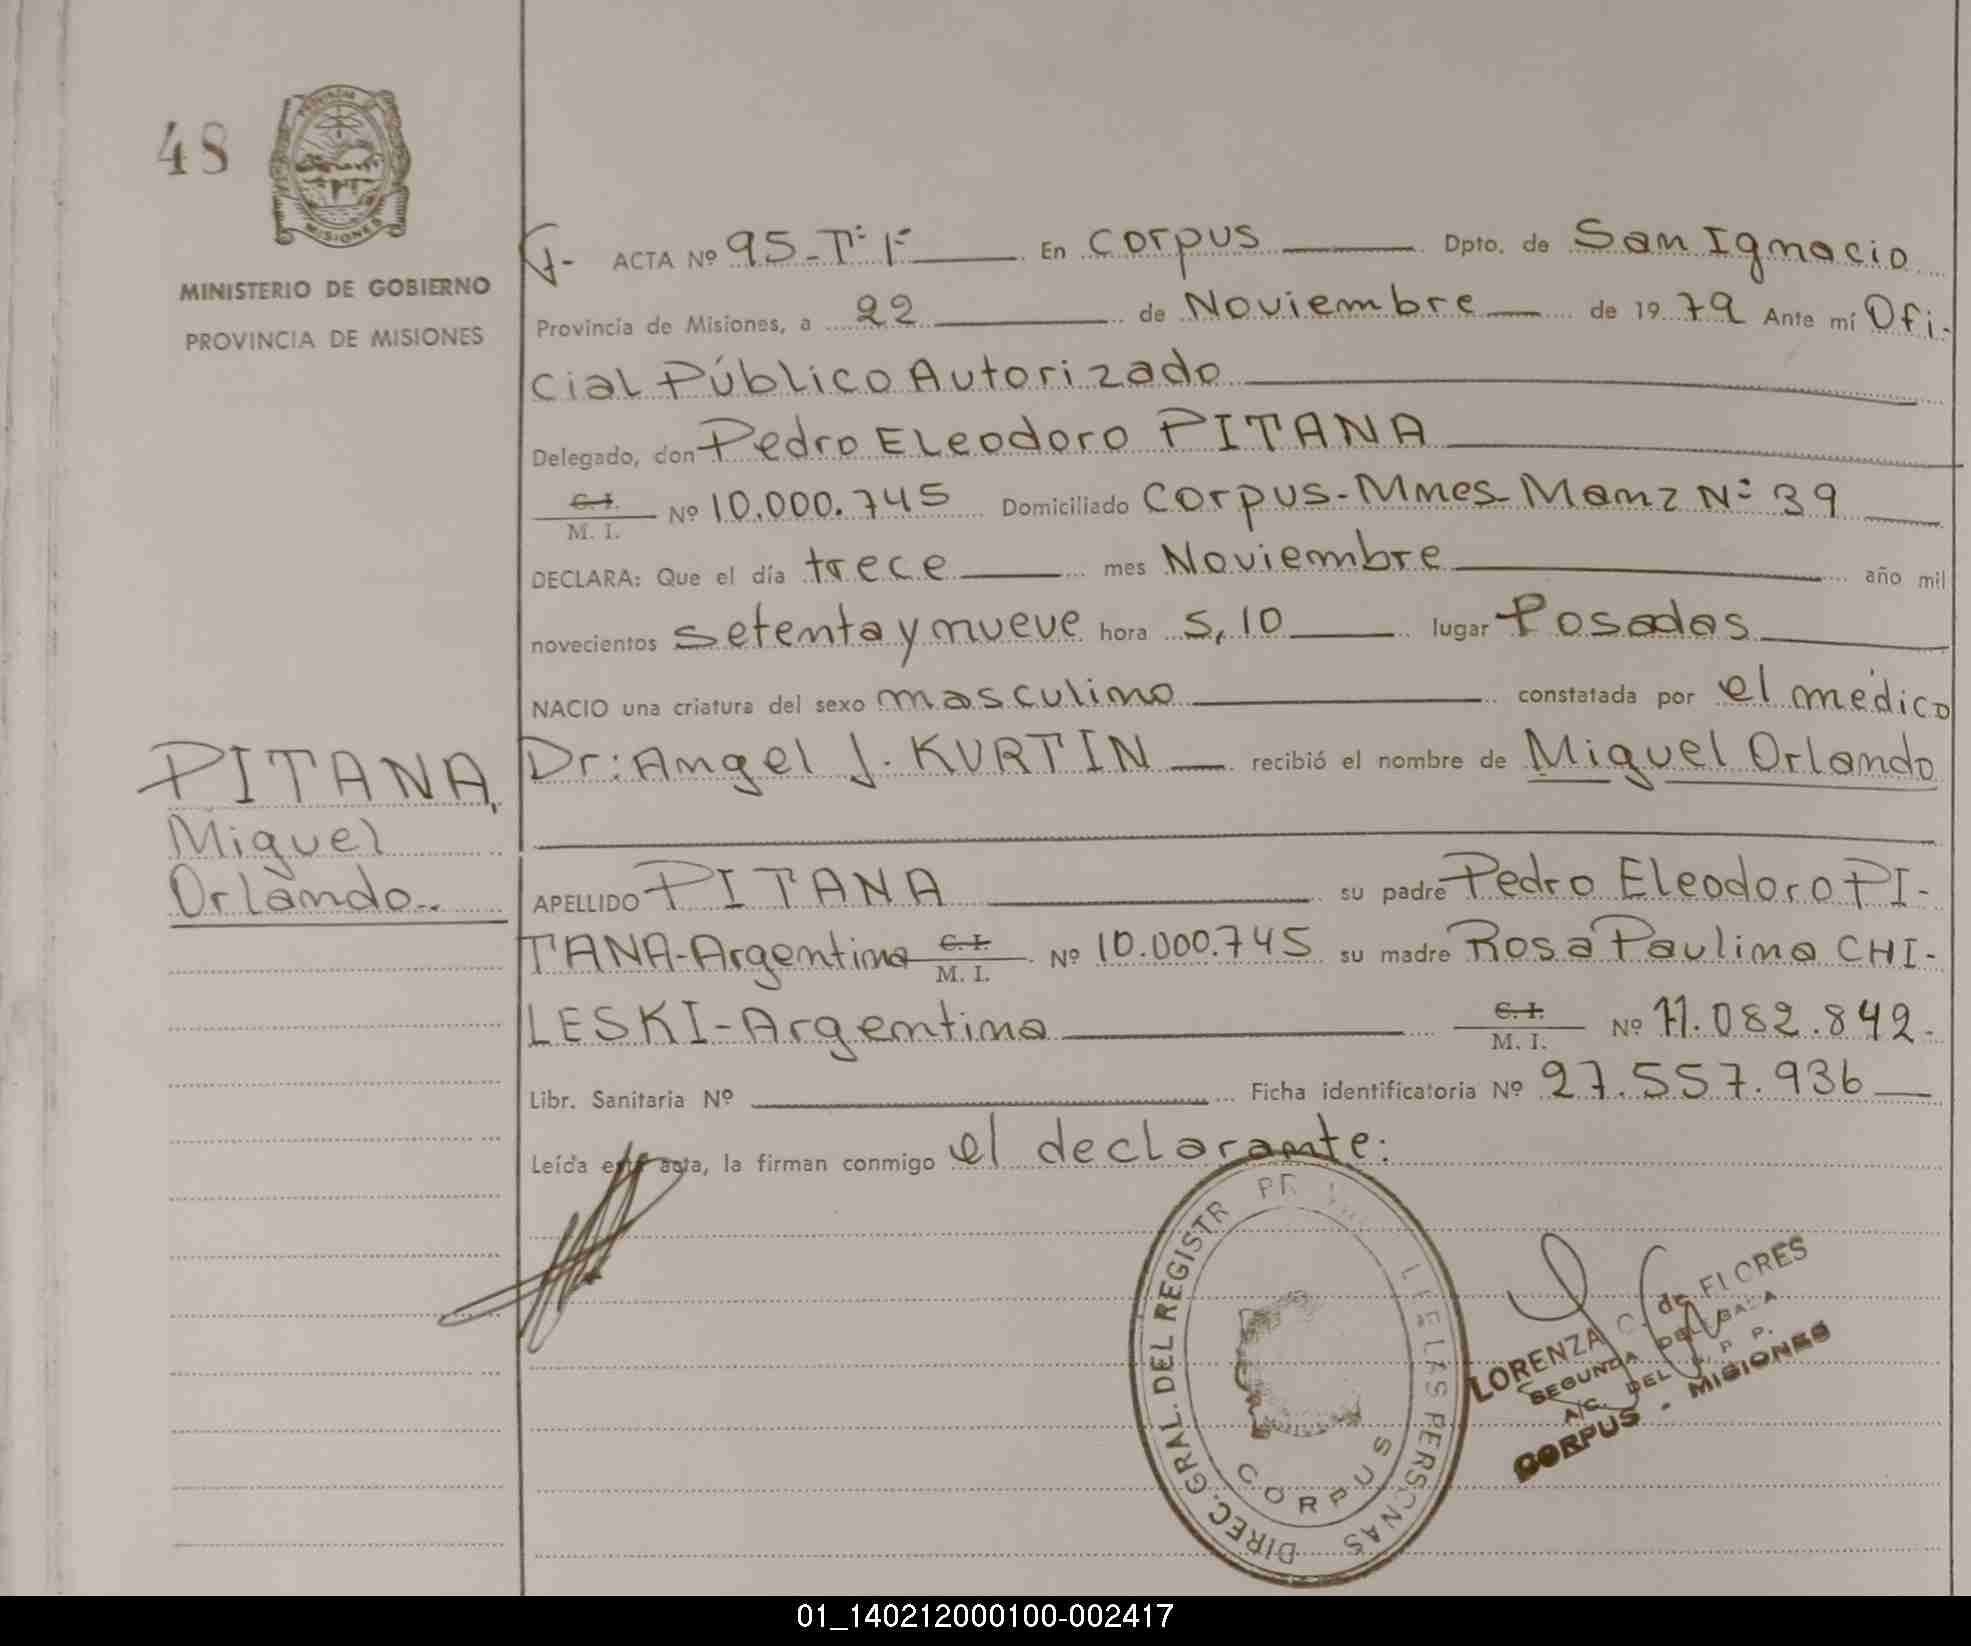 48
PROVINCIA
MISIONES
MINISTERIO DE GOBIERNO
PROVINCIA DE MISIONES
ACTA Nº 95-Tº1º En Corpus Dpto. de San Ignacio
Provincia de Misiones, a 22 de Noviembre de 1979 Ante mí Ofi-
cial Público Autorizado
Delegado, don Pedro Eleodoro PITANA
C. I. / M. I. Nº 10.000.745 Domiciliado Corpus-Mnes-Manz Nº 39
DECLARA: Que el día trece mes Noviembre año mil
novecientos setenta y nueve hora 5,10 lugar Posadas
NACIO una criatura del sexo masculino constatada por el médico
Dr: Angel J. KURTIN recibió el nombre de Miguel Orlando
PITANA,
Miguel
Orlando..
APELLIDO PITANA su padre Pedro Eleodoro PI-
TANA-Argentina C. I. / M. I. Nº 10.000.745 su madre Rosa Paulina CHI-
LESKI-Argentina C. I. / M. I. Nº 11.082.842-
Libr. Sanitaria Nº Ficha identificatoria Nº 27.557.936
Leída esta acta, la firman conmigo el declarante:
DIREC. GRAL. DEL REGISTR PR DE LAS PERSONAS
CORPUS
LORENZA C. de FLORES
SEGUNDA DELEGADA
A/C. DEL R. P. P.
CORPUS - MISIONES
01_140212000100-002417